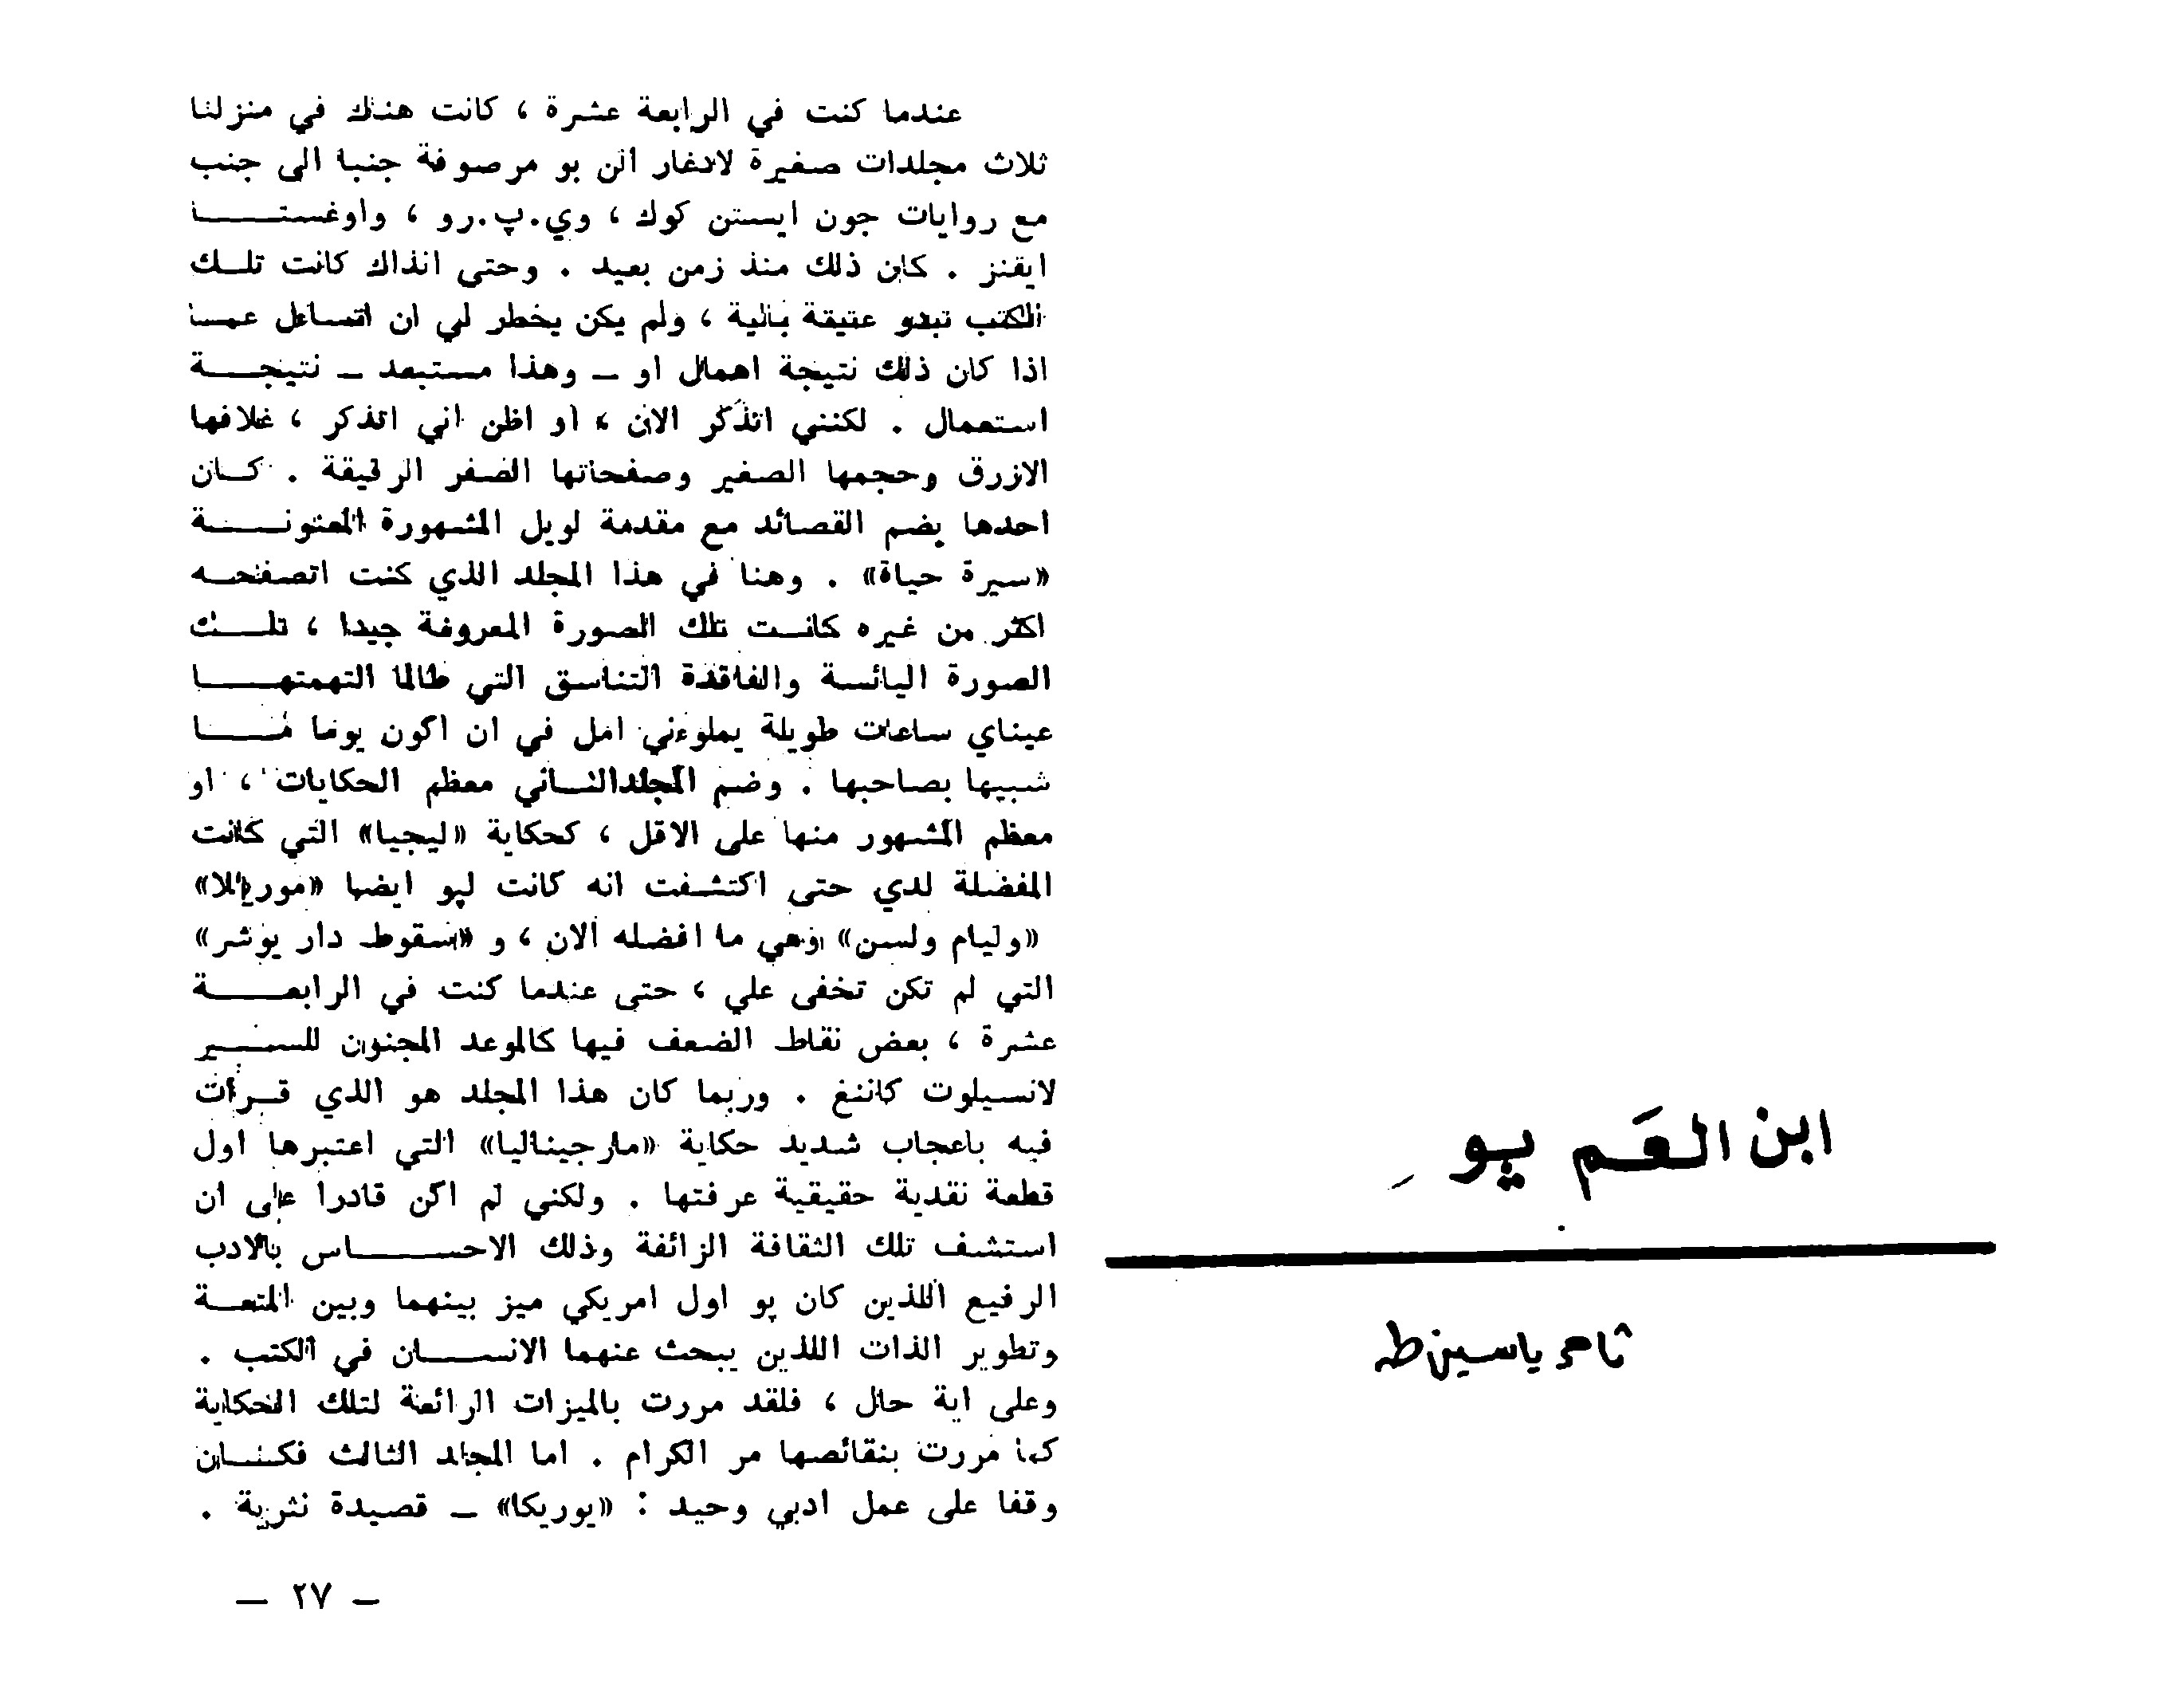 ابن العَم پو
ثامر ياسين طه
عندما كنت في الرابعة عشرة ، كانت هناك في منزلنا
ثلاث مجلدات صغيرة لادغار الن بو مرصوفة جنبا الى جنب
مع روايات جون ايستن كوك ، وي.پ.رو ، واوغستا
ايفنز . كان ذلك منذ زمن بعيد . وحتى انذاك كانت تلك
الكتب تبدو عتيقة بالية ، ولم يكن يخطر لي ان اتساءل عما
اذا كان ذلك نتيجة اهمال او – وهذا مستبعد – نتيجة
استعمال . لكنني اتذكر الان ، او اظن اني اتذكر ، غلافها
الازرق وحجمها الصغير وصفحاتها الصفر الرقيقة . كان
احدها يضم القصائد مع مقدمة لويل المشهورة المعنونة
«سيرة حياة» . وهنا في هذا المجلد الذي كنت اتصفحه
اكثر من غيره كانت تلك الصورة المعروفة جيدا ، تلك
الصورة اليائسة والفاقدة التناسق التي طالما التهمتها
عيناي ساعات طويلة يملوءني امل في ان اكون يوما ما
شبيها بصاحبها . وضم المجلد الثاني معظم الحكايات ، او
معظم المشهور منها على الاقل ، كحكاية «ليجيا» التي كانت
المفضلة لدي حتى اكتشفت انه كانت لپو ايضا «موريللا»
«وليام ولسن» وهي ما افضله الان ، و «سقوط دار يوشر»
التي لم تكن تخفى علي ، حتى عندما كنت في الرابعة
عشرة ، بعض نقاط الضعف فيها كالموعد المجنون للسير
لانسيلوت كاننغ . وربما كان هذا المجلد هو الذي قرأت
فيه باعجاب شديد حكاية «مارجيناليا» التي اعتبرها اول
قطعة نقدية حقيقية عرفتها . ولكني لم اكن قادرا على ان
استشف تلك الثقافة الزائفة وذلك الاحساس بالادب
الرفيع اللذين كان پو اول امريكي ميز بينهما وبين المتعة
وتطوير الذات اللذين يبحث عنهما الانسان في الكتب .
وعلى اية حال ، فلقد مررت بالميزات الرائعة لتلك الحكاية
كما مررت بنقائصها مر الكرام . اما المجلد الثالث فكان
وقفا على عمل ادبي وحيد : «يوريكا» – قصيدة نثرية .
– ٢٧ –